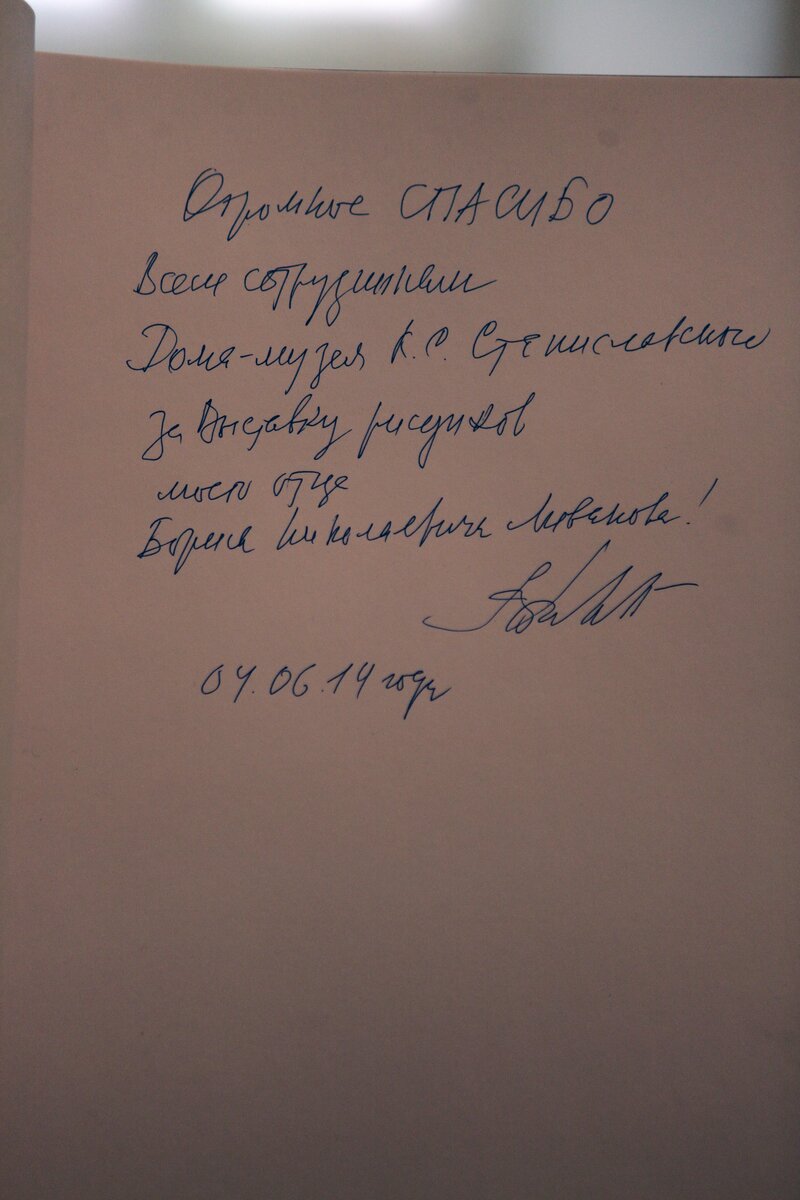 Огромное СПАСИБО
Всем сотрудникам
Дома-музея К.С. Станиславского
за выставку рисунков
моего отца
Бориса Николаевича Ливанова!
04.06.14 года